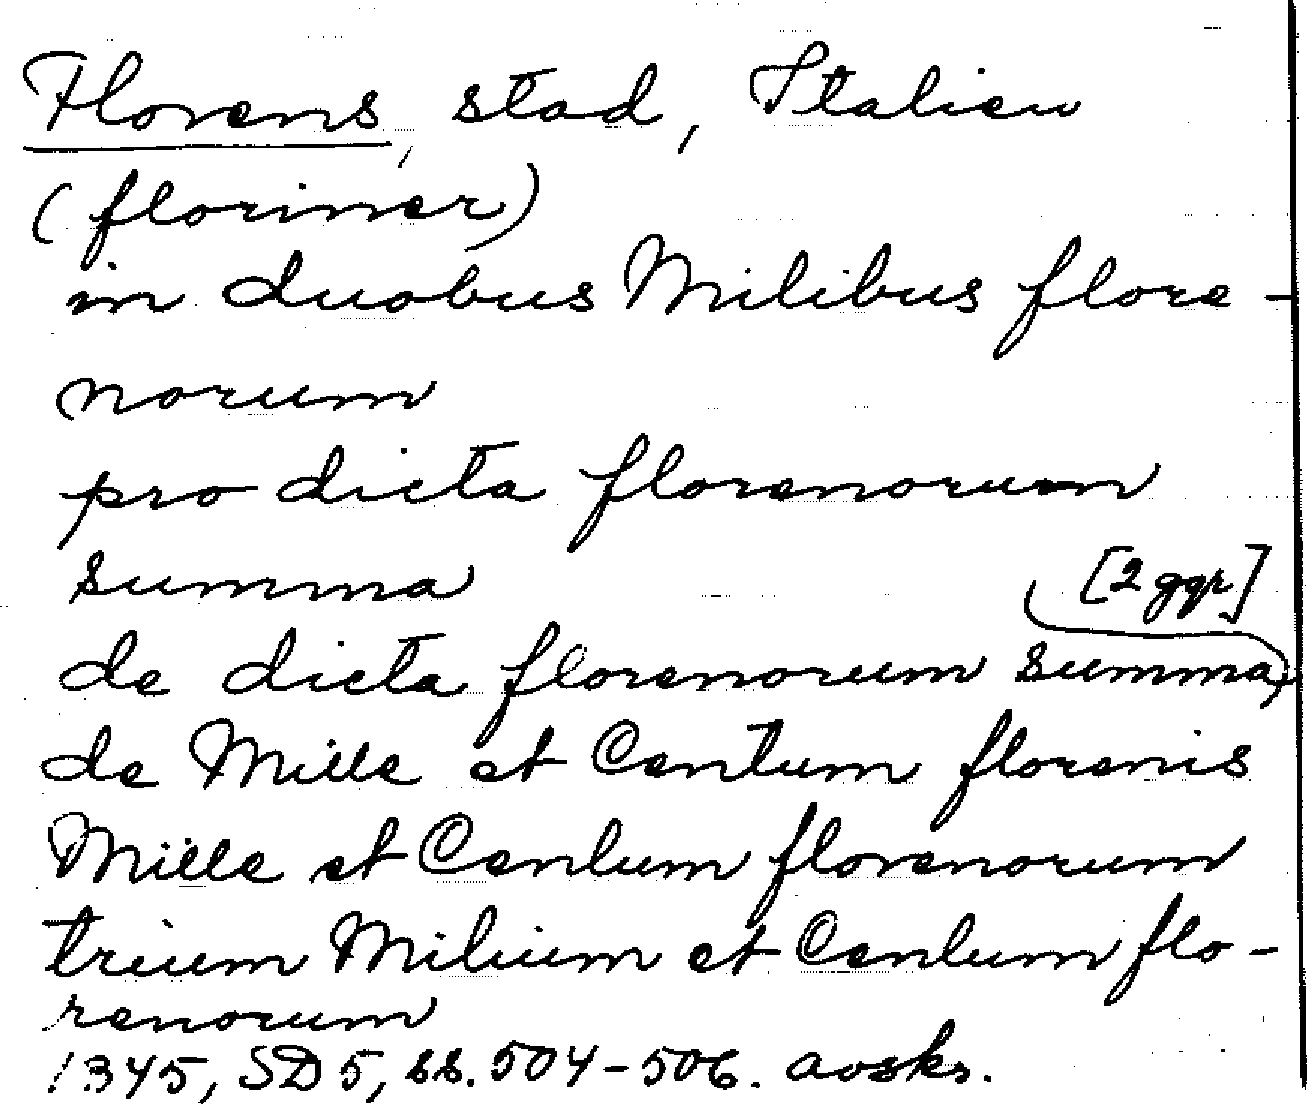 Florens, stad, Italien
(floriner)
in duobus Milibus flore-
norum
pro dicta florenorum
summa
[2 ggr]
de dicta florenorum summa,
de Mille et Centum florenis
Mille et Centum florenorum
trium Milium et Centum flo-
renorum
1345, SD 5, ss. 504-506. avskr.